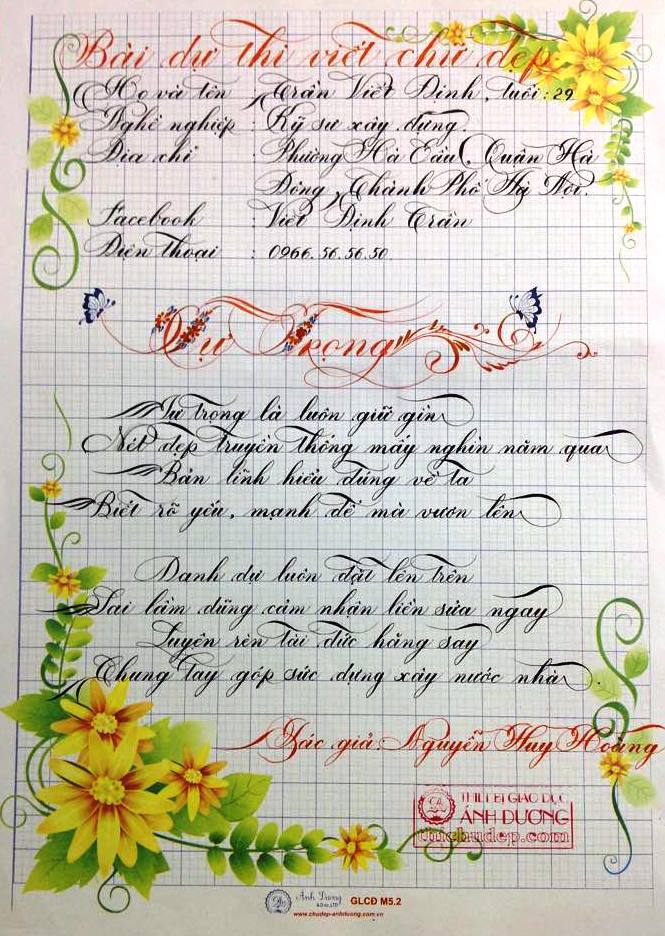 Bài dự thi viết chữ đẹp
Họ và tên : Trần Viết Định, tuổi: 29
Nghề nghiệp : Kỹ sư xây dựng.
Địa chỉ : Phường Hà Cầu, Quận Hà
Đông, Thành Phố Hà Nội.
Facebook : Viết Định Trần
Điện thoại : 0966.56.56.50
Tự Trọng
Tự trọng là luôn giữ gìn
Nét đẹp truyền thống mấy nghìn năm qua
Bản lĩnh hiểu đúng về ta
Biết rõ yếu, mạnh để mà vươn lên
Danh dự luôn đặt lên trên
Sai lầm dũng cảm nhận liền sửa ngay
Luyện rèn tài đức hăng say
Chung tay góp sức dựng xây nước nhà.
Tác giả: Nguyễn Huy Hoàng
THIẾT BỊ GIÁO DỤC
ÁNH DƯƠNG
thichudep.com
Ánh Dương
GLCĐ M5.2
www.chudep-anhduong.com.vn